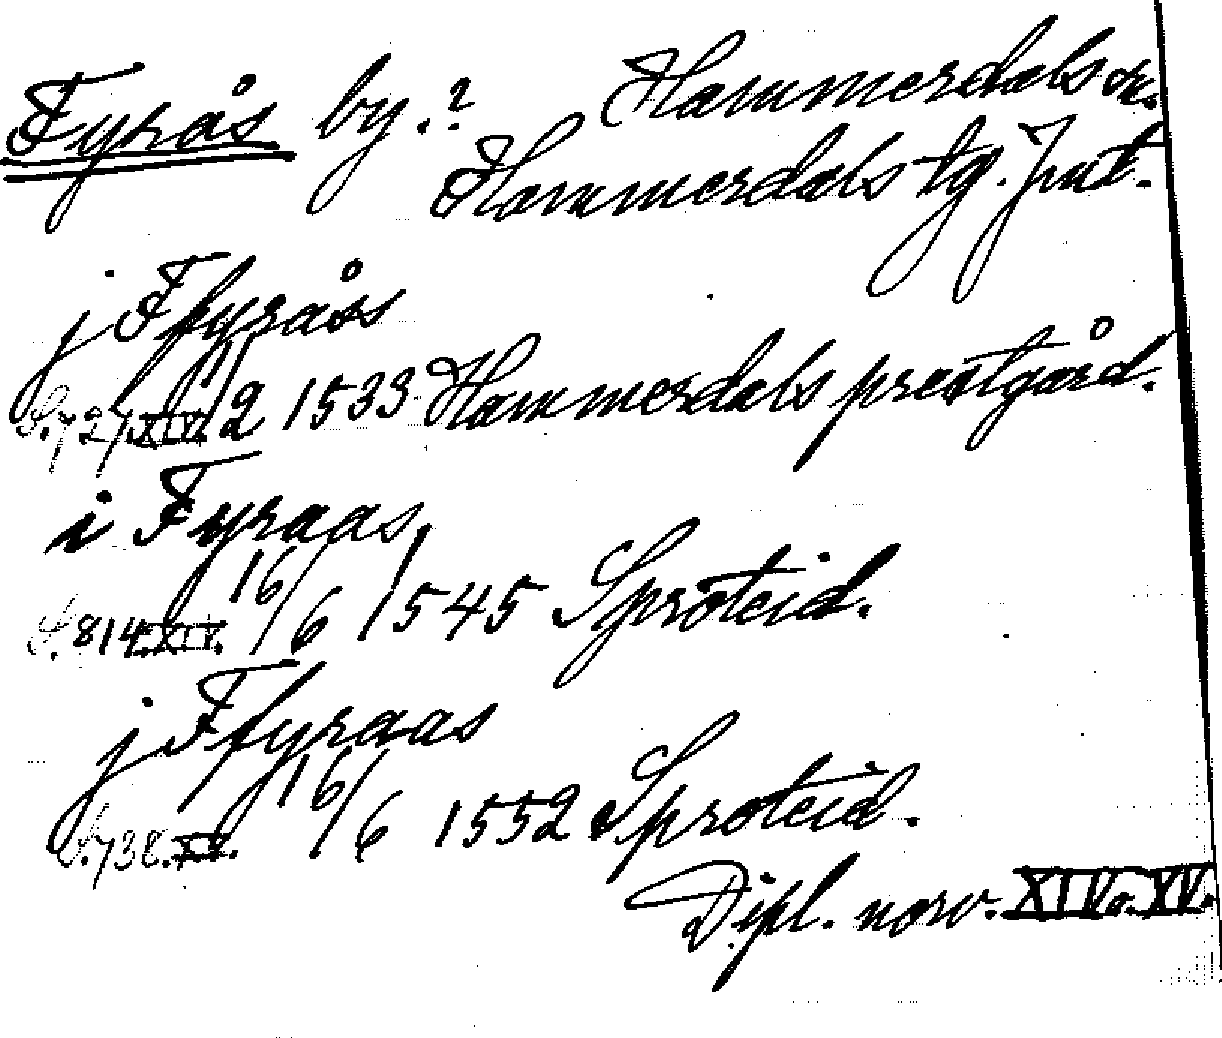 Fyrås by.? Hammerdals sn.
Hammerdals tg. Jmtl.
j Ffyråss
S. 727. XIV. 11/2 1533 Hammerdals prestgård.
i Fyraas,
S. 814. XIV. 16/6 1545 Sproteid.
j Ffyraas
S. 738. XV. 16/6 1552 Sproteid.
Dipl. norv. XIV o. XV.